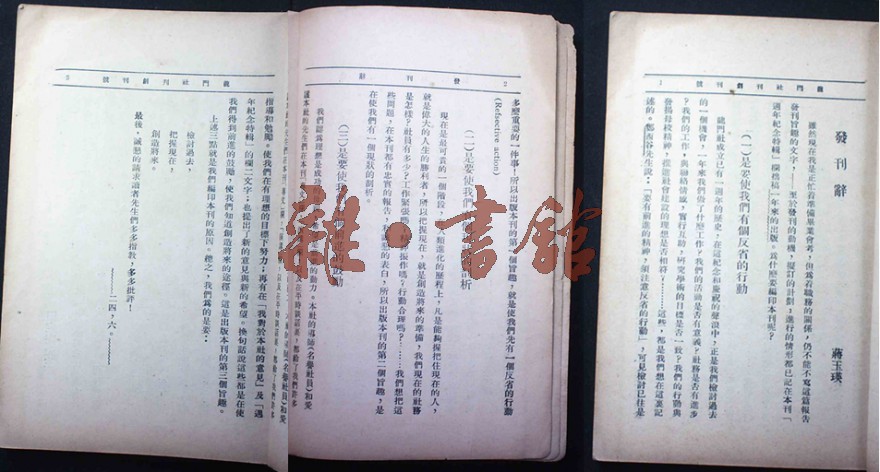 1 龍門社刊創刊號
發刊辭
蔣玉瑛
雖然現在我是正忙着準備畢業會考，但為着職務的關係，仍不能不寫這篇報告
發刊旨趣的文字，——至於發刊的動機，擬訂的計劃，進行的情形都已記在本刊「
週年紀念特輯」欄務稿一年來的出版。為什麼要編印本刊呢？
（一）是要使我們有個反省的行動
龍門社成立已有一週年的歷史，在這紀念和慶祝的聲浪中，正是我們檢討過去
的一個機會，一年來我們做了什麼工作？我們的活動是否有意義？社務是否有進步
？我們的工作，聯絡情感，實行互助，研究學術的目標是否一致？我們的行動與
發揚母校精神，推進社會建設的理想是否相符？……這些，都是我們想在這裏記
述的。鄭西谷先生說：「要有前進的精神，須注意反省的行動」，可見檢討已往是
2 發刊辭
多麼重要的一件事！所以出版本刊的第一個旨趣，就是使我們先有一個反省的行動
(Reflective action)
（二）是要使我們 析
現在是最可貴的一個階段， 人類進化的歷程上，凡是能夠握把住現在的人，
就是偉大的人生的勝利者，所以把握現在，就是創造將來的準備，我們現在的社務
是怎樣？社員有多少？工作緊張嗎？精神振作嗎？行動合理嗎？……我們想把這
些問題，在本刊都有忠實的報告， 的表白，所以出版本刊的第二個旨趣，是
在使我們有一個現狀的剖析。
（三）是要使我 的鼓勵
我們認為理想是成功 的動力。本社的導師（名譽社員）和愛
護本社的先生們
3 龍門社刊創刊號
指導和勉勵。使我們在有理想的目標下努力；再有在「我對於本社的意見」及「週
年紀念特輯」的欄二文字；也提出了新的意見與新的希望。換句話說這些都是在使
我們得到前進的鼓勵，使我們知道創造將來的途徑。這是出版本刊的第三個旨趣。
上述三點就是我們編印本刊的原因。總之，我們為的是要：
檢討過去，
把握現在，
創造將來。
最後，誠懇的請求讀者先生們多多指教，多多批評！
二四，六。
雜·書館